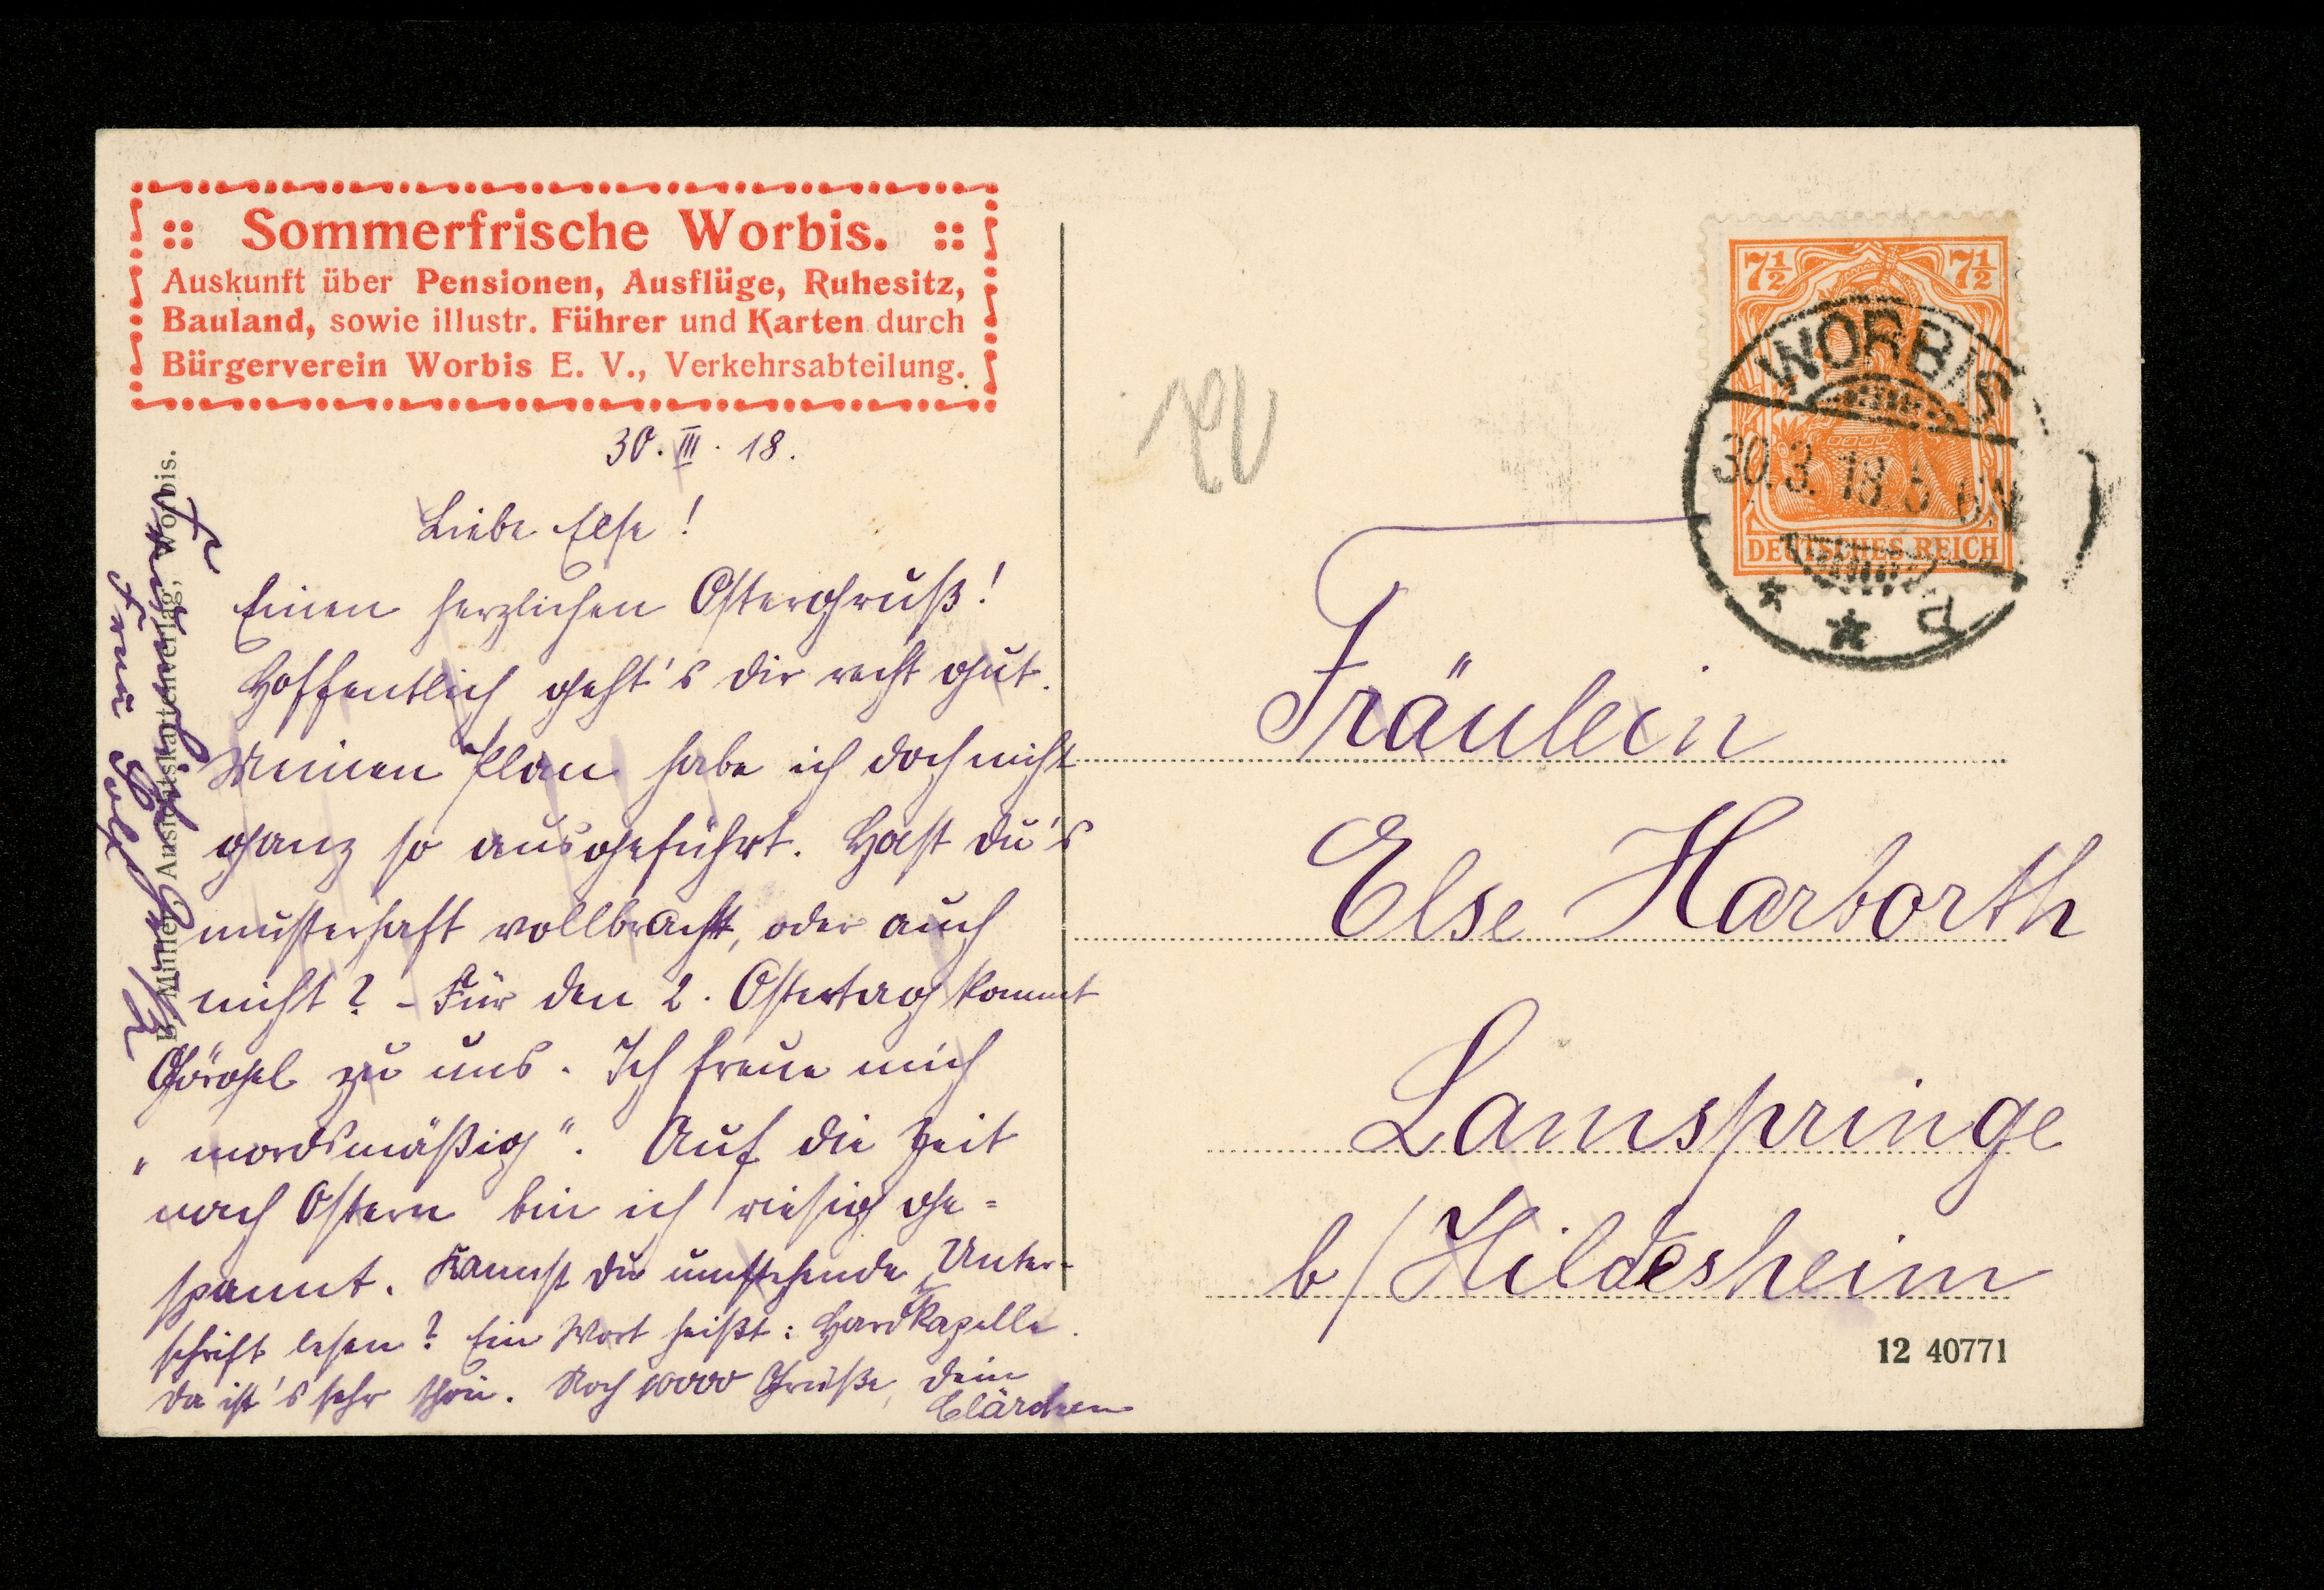 :: Sommerfrische Worbis. ::
Auskunft über Pensionen, Ausflüge, Ruhesitz,
Bauland, sowie illustr. Führer und Karten durch
Bürgerverein Worbis E. V., Verkehrsabteilung.
30. III. 18.
Liebe Else!
Einen herzlichen Ostergruß!
Hoffentlich geht's dir recht gut.
Meinen Plan habe ich doch nicht
ganz so ausgeführt. Hast du's
musterhaft vollbracht, oder auch
nicht? – Für den 2. Ostertag kommt
Görgel zu uns. Ich freue mich
„mordsmäßig“. Auf die Zeit
nach Ostern bin ich riesig ge=
spannt. Kannst du umstehende Unter-
schrift lesen? Ein Wort heißt: Hardkapelle.
Da ist's sehr schön. Noch 10000 Grüße, dein
Clärchen
Müller, Ansichtskartenverlag, Worbis.
Frau
7½ 7½
DEUTSCHES REICH
WORBIS
30.3.18.5-6N
* * d
Fräulein
Else Harborth
Lamspringe
b/Hildesheim
12 40771